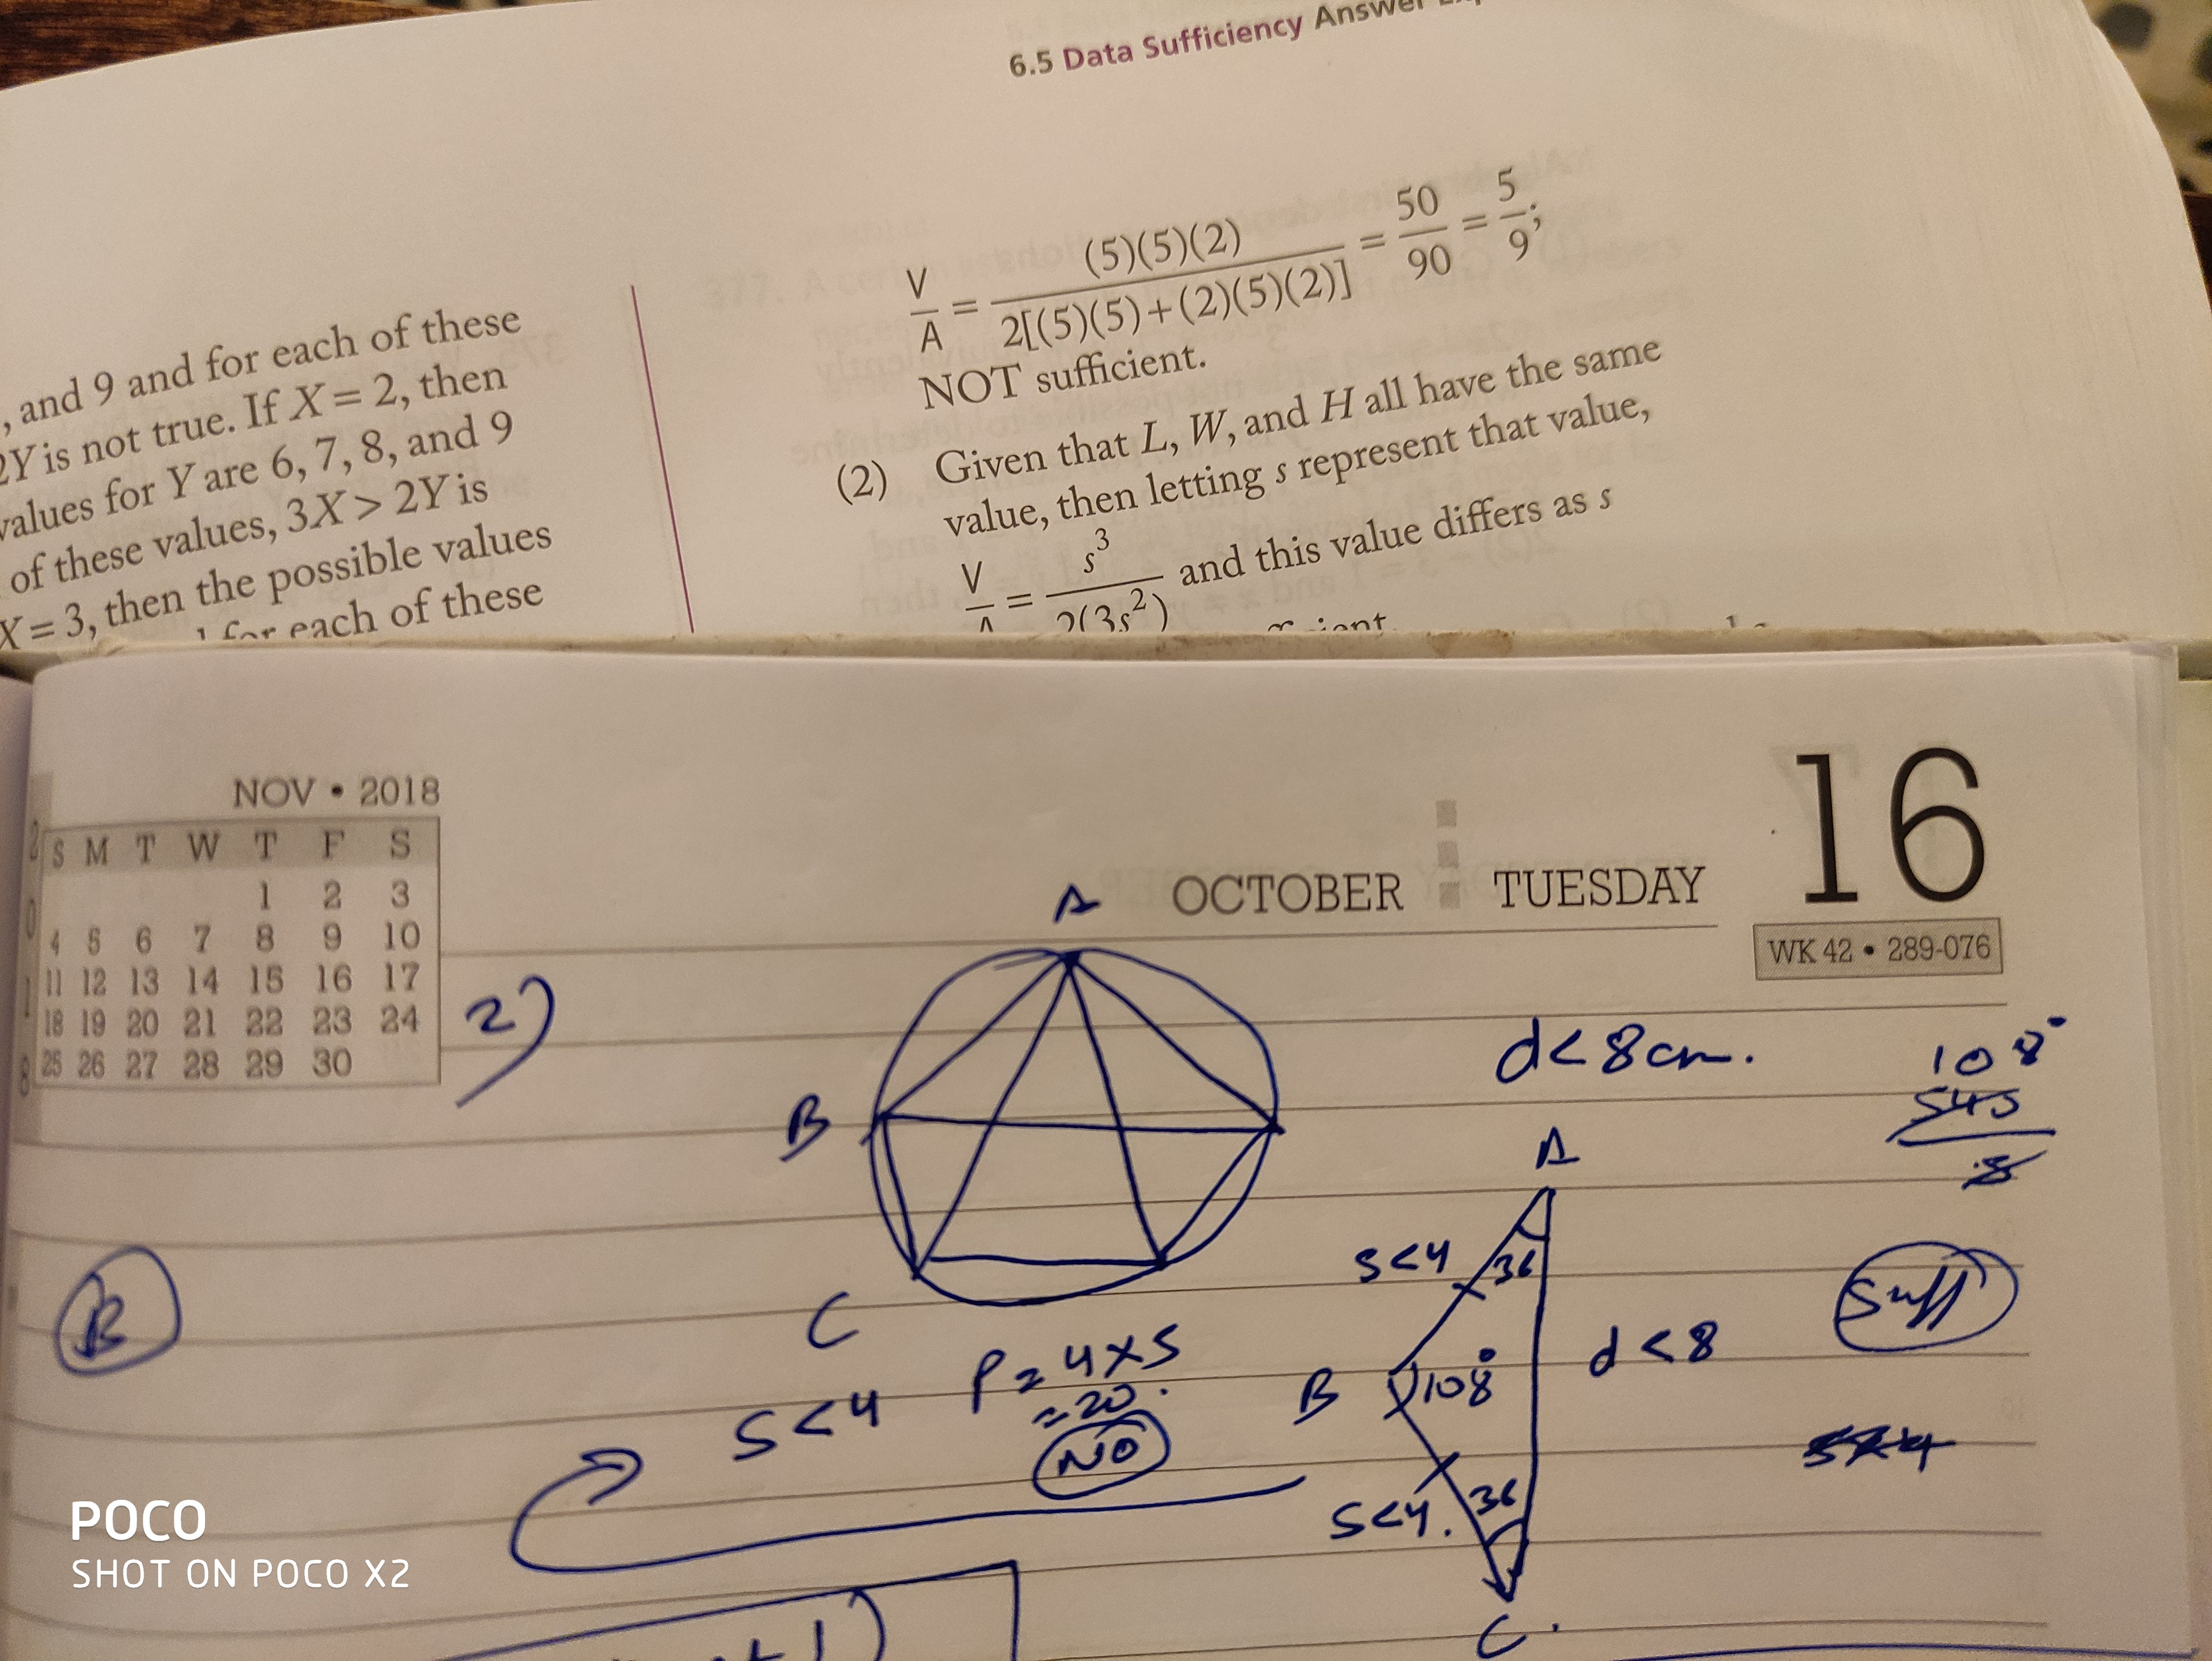 6.5 Data Sufficiency Answer
, and 9 and for each of these
2Y is not true. If X = 2, then
values for Y are 6, 7, 8, and 9
of these values, 3X > 2Y is
X = 3, then the possible values
for each of these
V/A = (5)(5)(2) / 2[(5)(5)+(2)(5)(2)] = 50/90 = 5/9;
NOT sufficient.
(2) Given that L, W, and H all have the same
value, then letting s represent that value,
V/A = s³/2(3s²) and this value differs as s
NOV • 2018
S M T W T F S
1 2 3
4 5 6 7 8 9 10
11 12 13 14 15 16 17
18 19 20 21 22 23 24
25 26 27 28 29 30
2018
OCTOBER TUESDAY 16
WK 42 • 289-076
2)
A
B
C
d<8cm.
108°
540
5
A
S<4
36
B
108°
d<8
S<4.
36
C.
Suff
B
S<4
P = 4×5
=20.
NO
POCO
SHOT ON POCO X2